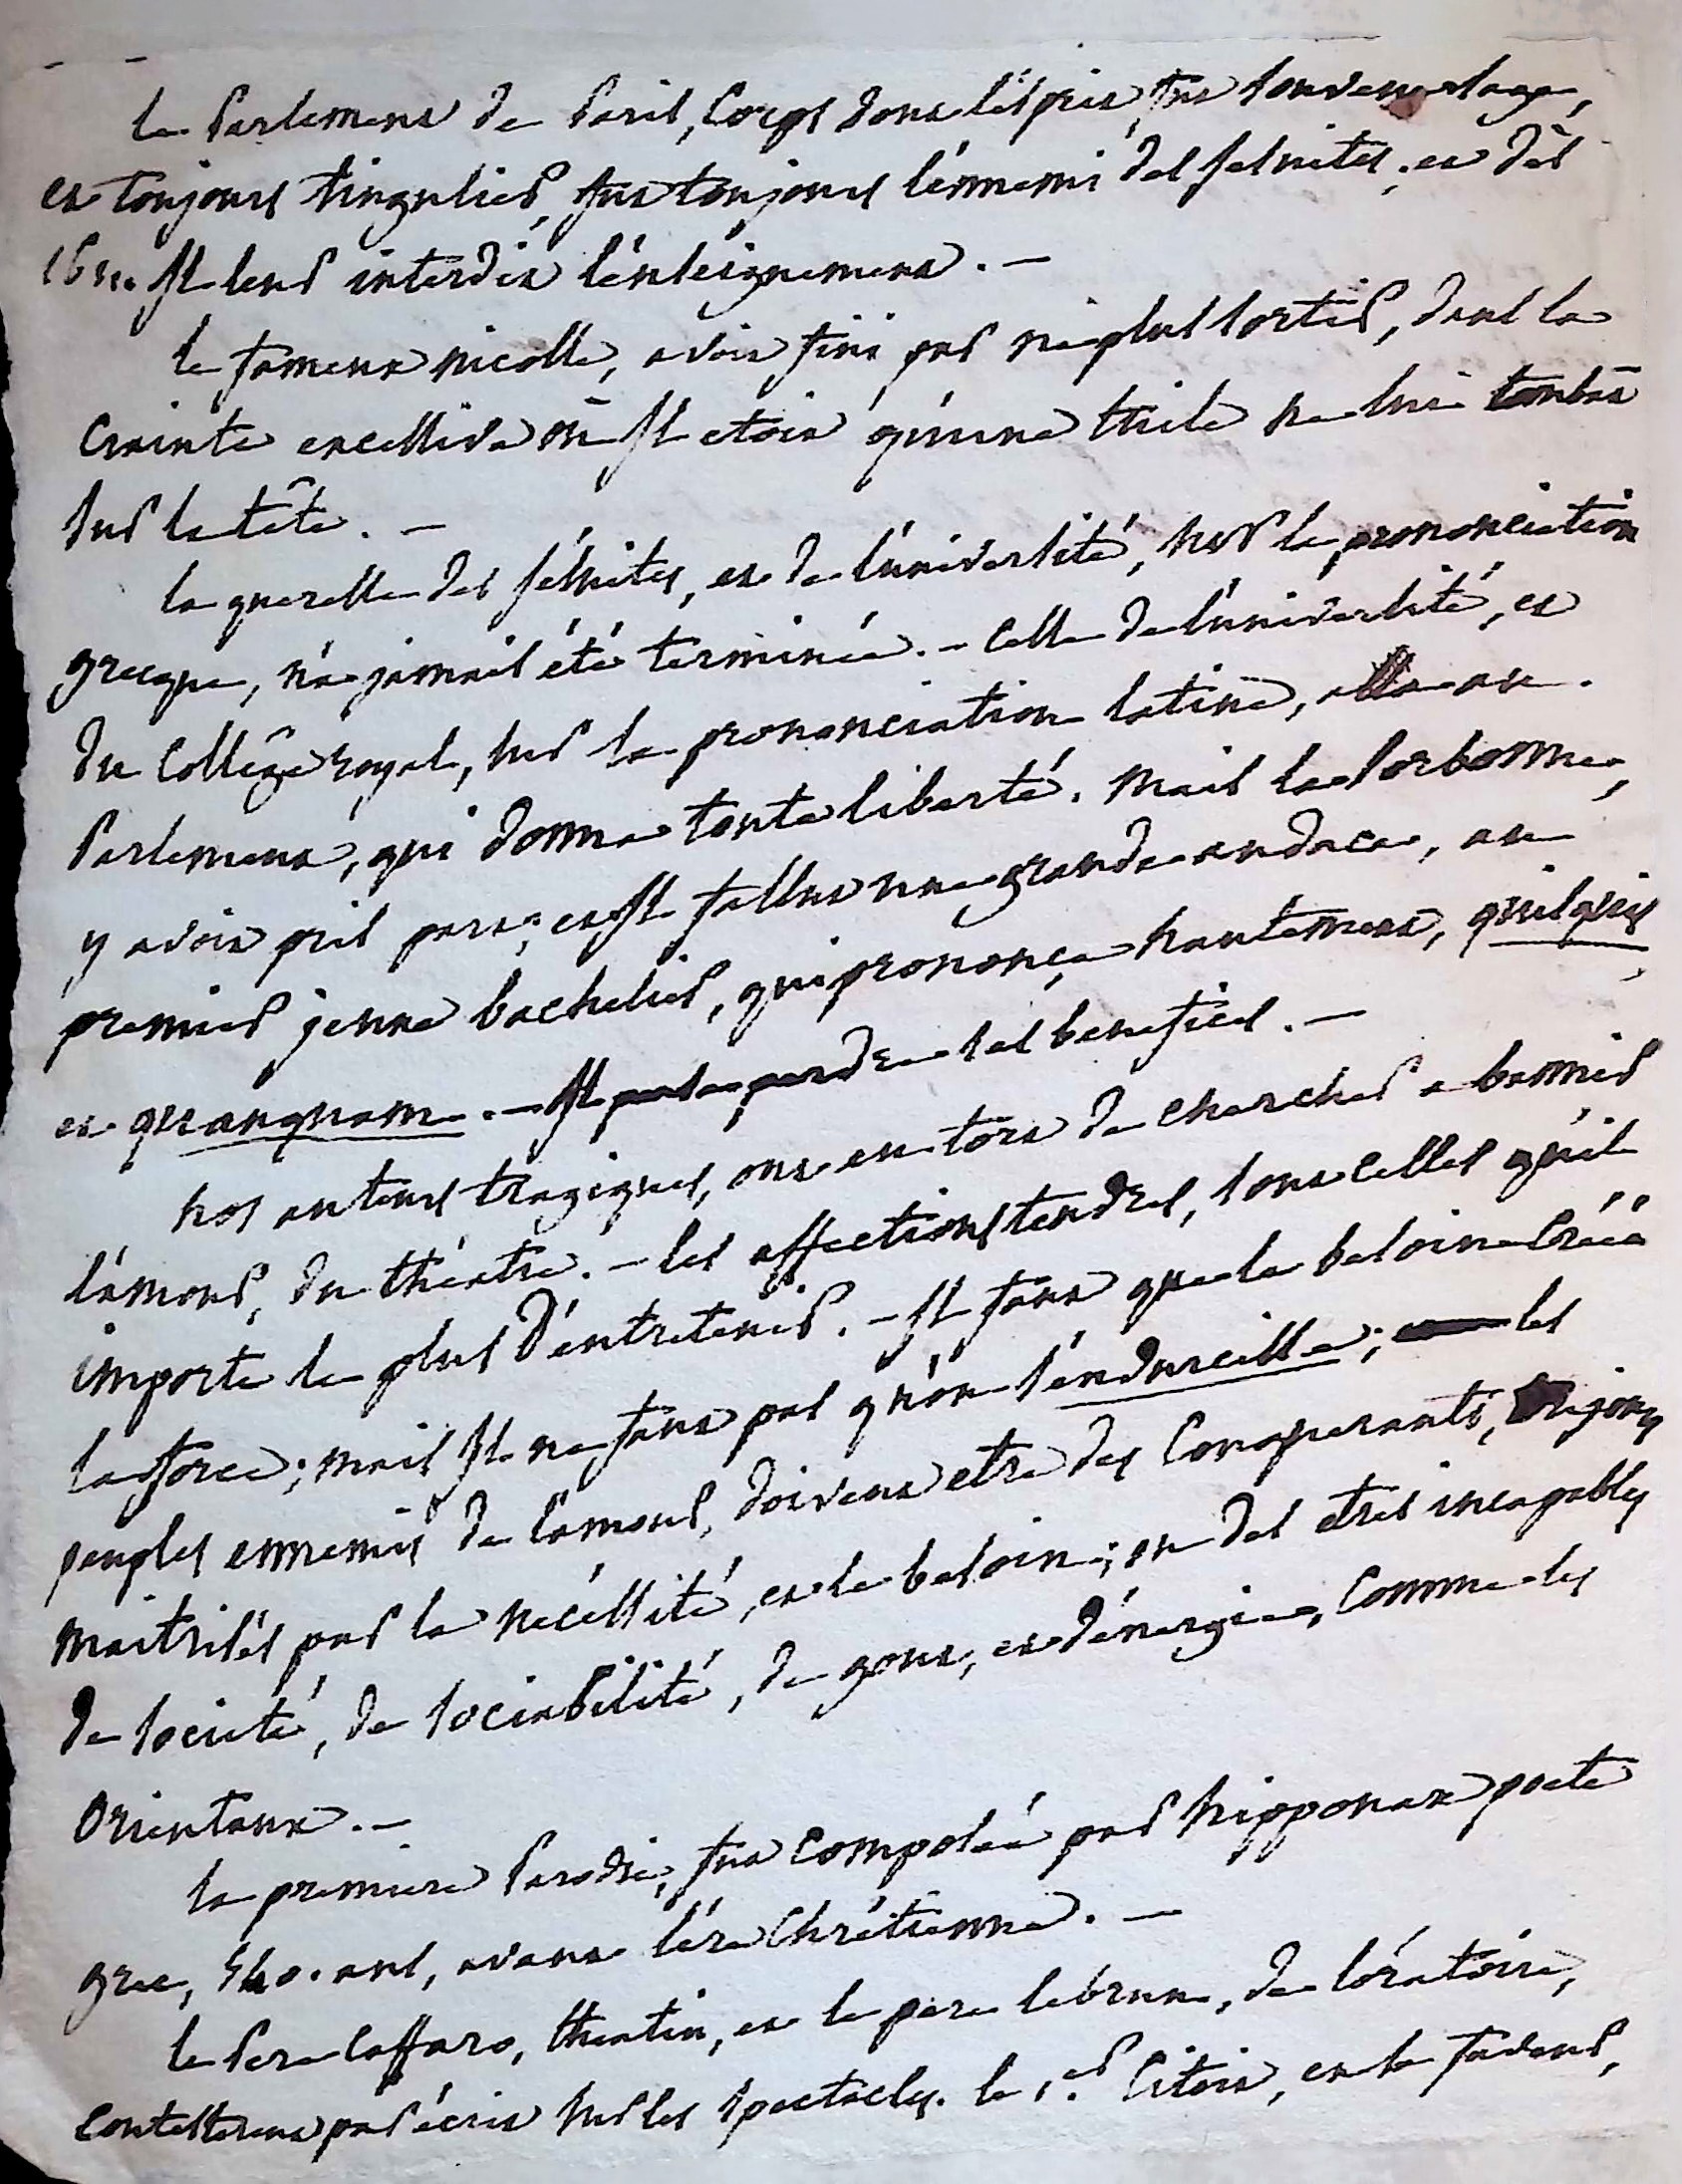 le Parlement de Paris, Corps dont l'esprit fut souvent sage,
et toujours singulier, fut toujours l'énnemi des Jesuites; et dès
Il leur interdit l'énseignement. —
le fameux nicolle, avoit fini par ne plus sortir, dans la
Crainte excessive où Il etoit qu'une tuile ne lui tombât
sur la tête. —
la querelle des Jésuites, et de l'université, sur la prononciation
grecque, n'a jamais été terminée. — Celle de l'université, et
du Collêge royal, sur la prononciation latine, alla au
Parlement, qui donna toute liberté. Mais la Sorbonne,
y avoit pris part; et Il fallut une grande audace, au
premier jeune bachelier, qui prononça hautement, quisquis
et quanquam. — Il perdre ses benefices. —
nos auteurs tragiques, ont eu tort de chercher a bannir
l'amour, du théatre. — les affections tendres, sont celles qu'il
importe le plus d'éntretenir. — Il faut que le besoin crée
la force; mais Il ne faut pas qu'on s'endurcisse; les
peuples ennemis de l'amour, doivent etre des Conquerants, toujours
maitrisés par la nécéssité, et le besoin; ou des etres incapables
de societé, de sociabilité, de gout, et d'énergie, Comme les
Orientaux. —
la premiere Parodie, fut composée par hipponax poete
grec, 540. ans, avant l'ére Chrétienne. —
le Pere Caffaro, theatin, et le pere lebrun, de l'oratoire,
Contesterent par écrit sur les spectacles. le 1.er Citoit, en la faveur,